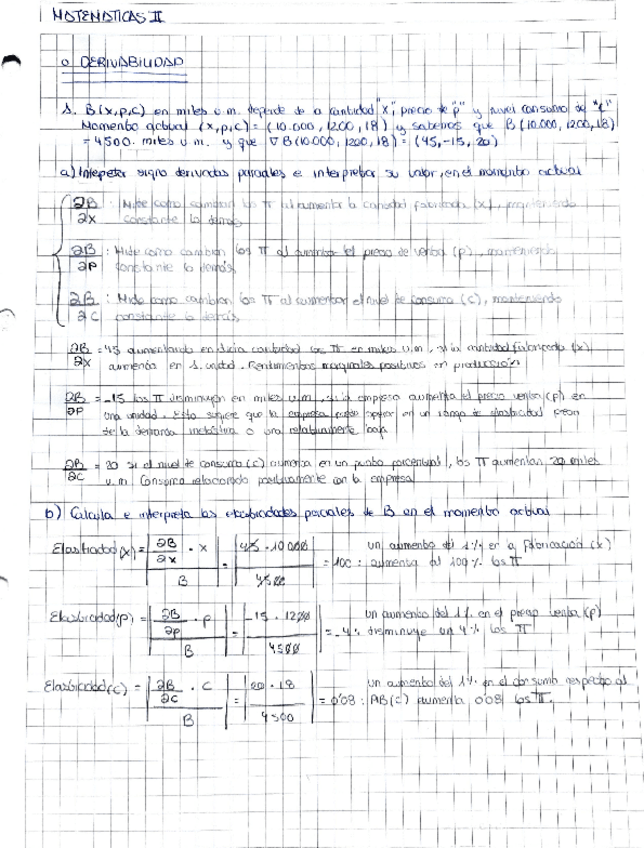 MATEMATICAS II
o DERIVABILIDAD
1. B(x,p,c) en miles u.m. depende de a cantidad "x", precio de "p" y nivel consumo de "c"
Momento actual (x,p,c) = (10.000, 1200, 18) y sabemos que B(10.000, 1200, 18)
= 4500. miles u.m. y que ∇B(10.000, 1200, 18) = (45, -15, 20)
a) Intepetar signo derivadas parciales e interpretar su valor, en el momento actual
∂B/∂x : Mide como cambian los π al aumentar la cantidad fabricada (x), manteniendo
constante lo demás
∂B/∂p : Mide como cambian los π al aumentar el precio de venta (p), manteniendo
constante lo demás
∂B/∂c : Mide como cambian los π al aumentar el nivel de consumo (c), manteniendo
constante lo demás
∂B/∂x = 45 aumentando en dicha cantidad los π en miles u.m, si la cantidad fabricada (x)
aumenta en 1 unidad. Rendimientos marginales positivos en producción
∂B/∂p = -15 los π disminuyen en miles u.m, si la empresa aumenta el precio venta (p) en
una unidad. Esto sugiere que la empresa puede operar en un rango de elasticidad precio
de la demanda inelástica o una relativamente baja
∂B/∂c = 20 si el nivel de consumo (c) aumenta en un punto porcentual, los π aumentan 20 miles
u.m Consumo relacionado positivamente con la empresa
b) Calcula e interpreta las elasticidades parciales de B en el momento actual
Elasticidad(x) = |∂B/∂x · x / B| = |45 · 10000 / 4500| = 100 : un aumento del 1% en la fabricación (x)
aumenta al 100% los π
Elasticidad(p) = |∂B/∂p · p / B| = |-15 · 1200 / 4500| = -4% Un aumento del 1% en el precio venta (p)
disminuye un 4% los π
Elasticidad(c) = |∂B/∂c · c / B| = |20 · 18 / 4500| = 0'08 : un aumento del 1% en el consumo respecto al
AB(c) aumenta 0'08 los π.